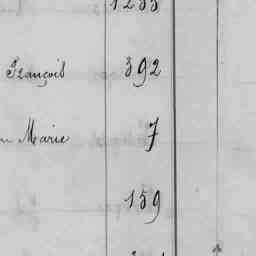 François 392
Marie 7
159